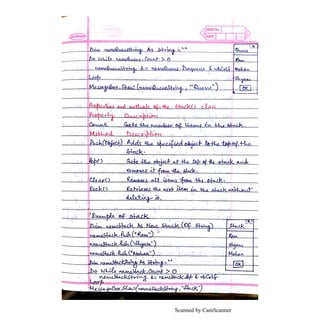 PAGE No.
DATE
Dim nameQueueString As String = ""
Do While nameQueue.Count > 0
nameQueueString &= nameQueue.Dequeue & vbCrLf
Loop
MessageBox.Show (nameQueueString, "Queue")
Queue X
Ram
Mohan
Shyam
OK
Properties and methods of the Stack() class
Property Description
Count Gets the number of items in the stack.
Method Description
Push(Object) Adds the specified object to the top of the
Stack.
Pop() Gets the object at the top of the stack and
removes it from the stack.
Clear() Removes all items from the stack.
Peek() Retrieves the next item in the stack without
deleting it.
'Example of stack
Dim nameStack As New Stack (Of String)
nameStack.Push ("Ram")
nameStack.Push ("Shyam")
nameStack.Push ("Mohan")
Dim nameStackString As String = ""
Do While nameStack.Count > 0
nameStackString &= nameStack.Pop & vbCrLf
Loop
MessageBox.Show (nameStackString, "Stack")
Stack X
Ram
Shyam
Mohan
OK
Scanned by CamScanner